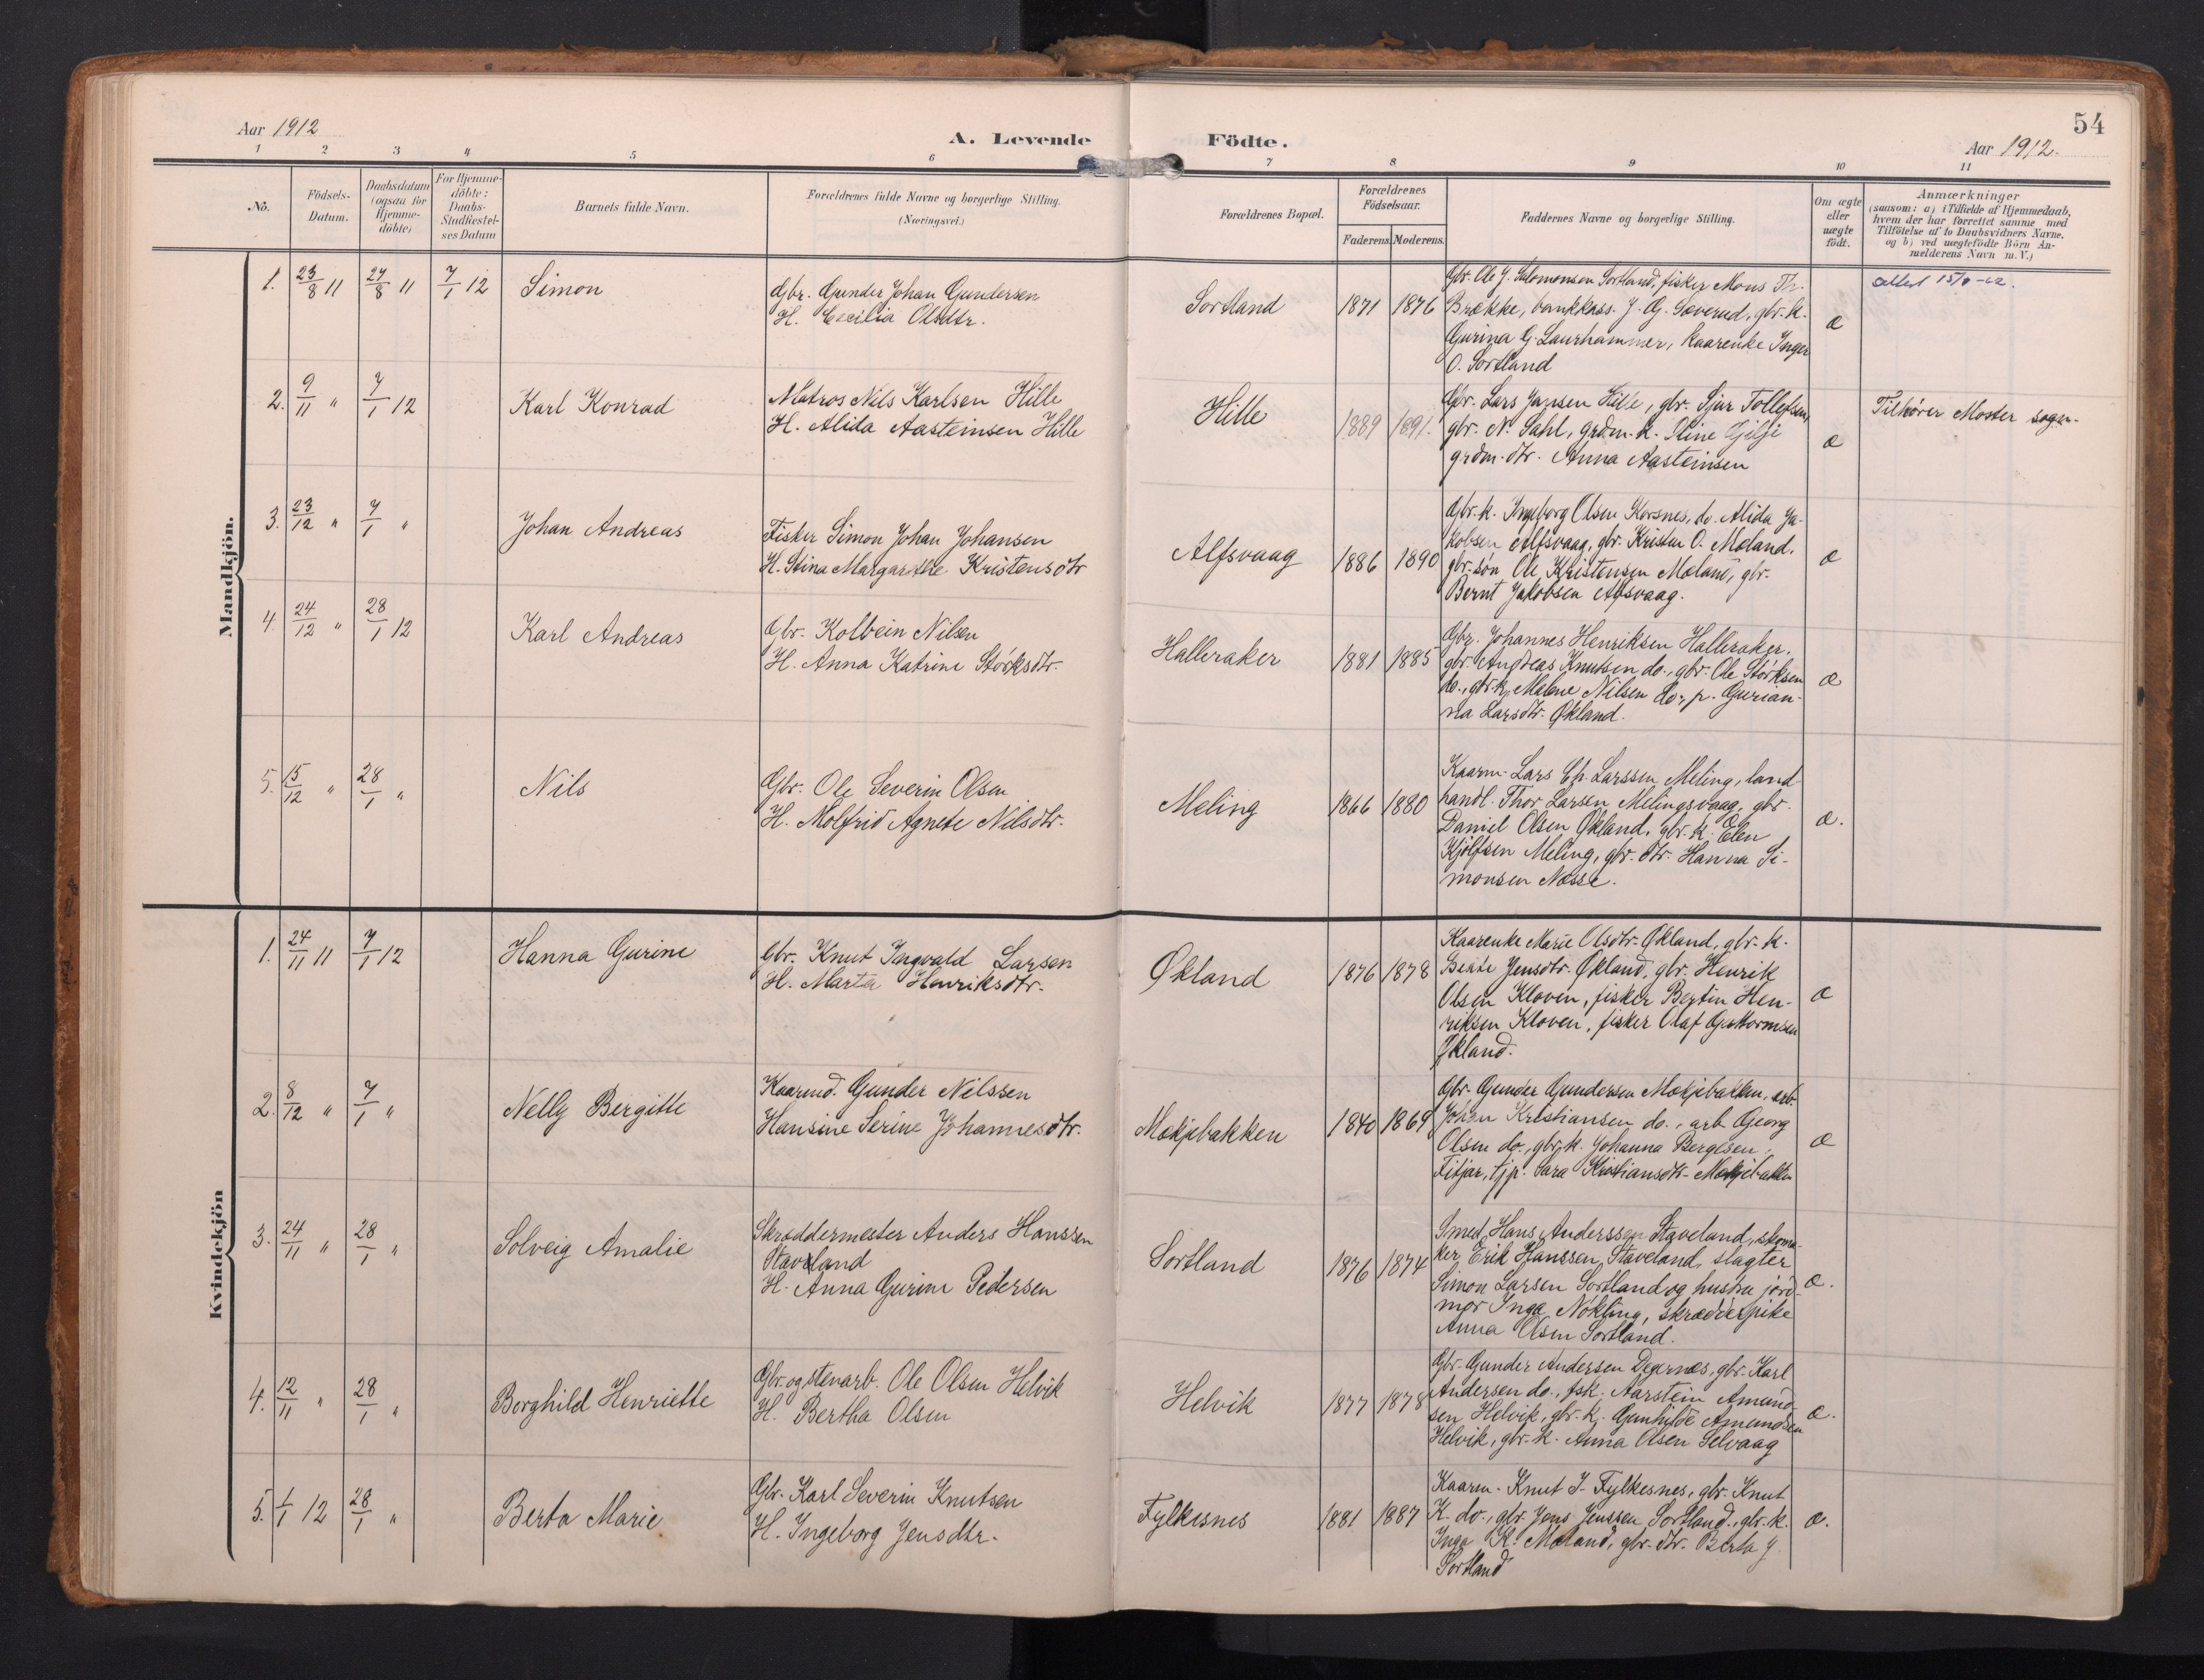 54
Aar 1912
A. Levende Födte.
Aar 1912.
1 2 3 4 5 6 7 8 9 10 11
No.
Födsels-
Datum.
Daabsdatum
(ogsaa for
Hjemme-
döbte)
For Hjemme-
döbte:
Daabs-
Stadfæstel-
ses Datum
Barnets fulde Navn.
Forældrenes fulde Navne og borgerlige Stilling.
(Næringsvei.)
Forældrenes Bopæl.
Forældrenes
Födselsaar.
Faderens. Moderens.
Faddernes Navne og borgerlige Stilling.
Om ægte
eller
uægte
födt.
Anmærkninger
(saasom: a) i Tilfælde af Hjemmedaab,
hvem der har forrettet samme, med
Tilföielse af to Daabsvidners Navne,
og b) ved uægtefödte Börn An-
melderens Navn m. V.)
Mandkjön.
1. 23/8 11 27/8 11 7/1 12 Simon
Gbr. Gunder Johan Gundersen
H. Cecilia Olsdtr.
Sortland 1871 1876
Gbr. Ole J. Salomonsen Sortland, fisker Mons Th.
Brække, bankkass. J. G. Sæverud, gbr. k.
Gurina G. Laurhammer, kaarenke Inger
O. Sortland
æ
2. 9/11 " 7/1 12 Karl Konrad
Matros Nils Karlsen Hille
H. Alida Aasteinsen Hille
Hille 1889 1891.
Gbr. Lars Jansen Hille, gbr. Sjur Tollefsen,
gbr. N. Sahl, grdm. k. Stine Gilje
grdm. dtr. Anna Aasteinsen
æ
Tilhører Moster sogn.
3. 23/12 " 7/1 " Johan Andreas
Fisker Simon Johan Johansen
H. Stina Margarethe Kristensdtr
Alfsvaag 1886 1890
Gbr. k. Ingeborg Olsen Korsnes, do. Alida Ja-
kobsen Alfsvaag, gbr. Kristen O. Mæland,
gbr. søn Ole Kristensen Mæland, gbr.
Bernt Jakobsen Alfsvaag.
æ
4. 24/12 " 28/1 12 Karl Andreas
Gbr. Kolbein Nilsen
H. Anna Katrine Størksdtr.
Halleraker 1881 1885
Gbr. Johannes Henriksen Halleraker,
gbr. Andreas Knutsen do., gbr. Ole Størksen
do., gbr. k. Malene Nilsen do., p. Gurian-
na Larsdtr. Økland.
æ
5. 15/12 " 28/1 " Nils
Gbr. Ole Severin Olsen
H. Molfrid Agnete Nilsdtr.
Meling 1866 1880
Kaarm. Lars Chr. Larssen Meling, land-
handl. Thor Larsen Melingsvaag, gbr.
Daniel Olsen Økland, gbr. k. Elen
Kjølfsen Meling, gbr. dtr. Hanna Si-
monsen Næsse.
æ.
Kvindekjön
1. 24/11 11 7/1 12 Hanna Gurine
Gbr. Knut Ingvald Larsen
H. Marta Henriksdtr.
Økland 1876 1878
Kaarenke Marie Olsdtr. Økland, gbr. k.
Beate Jensdtr. Økland, gbr. Henrik
Olsen Kloven, fisker Bertin Hen-
riksen Kloven, fisker Olaf Guttormsen
Økland.
æ
2. 8/12 " 7/1 " Nelly Bergitte
Kaarmd. Gunder Nilssen
Hansine Serine Johannesdtr.
Mækjebakken 1840 1869
Gbr. Gunder Gundersen Mækjebakken, arb.
Johan Kristiansen do., arb. Georg
Olsen do., gbr. k. Johanna Bergesen
Fitjar, tjp. Sara Kristiansdtr. Mækjebakken
æ
3. 24/11 " 28/1 " Solveig Amalie
Skræddermester Anders Hanssen
Staveland
H. Anna Gurine Pedersen
Sortland 1876 1874
Smed Hans Anderssen Staveland, skoma-
ker Erik Hanssen Staveland, slagter
Simon Larsen Sortland og hustru jord-
mor Inga Nøkling, skrædderpike
Anna Olsen Sortland.
æ.
4. 12/11 " 28/1 " Borghild Henriette
Gbr. og stenarb. Ole Olsen Helvik
H. Bertha Olsen
Helvik 1877 1878
Gbr. Gunder Andersen Degernæs, gbr. Karl
Andersen do., fsk. Aarstein Amund-
sen Helvik, gbr. k. Gunhilde Amundsen
Helvik, gbr. k. Anna Olsen Selvaag
æ.
5. 1/1 12 28/1 " Berta Marie
Gbr. Karl Severin Knutsen
H. Ingeborg Jensdtr.
Fylkesnes 1881 1887
Kaarm. Knut J. Fylkesnes, gbr. Knut
K. do., gbr. Jens Jenssen Sortland, gbr. k.
Inga K. Mæland, gbr. dtr. Berta J.
Sortland
æ.